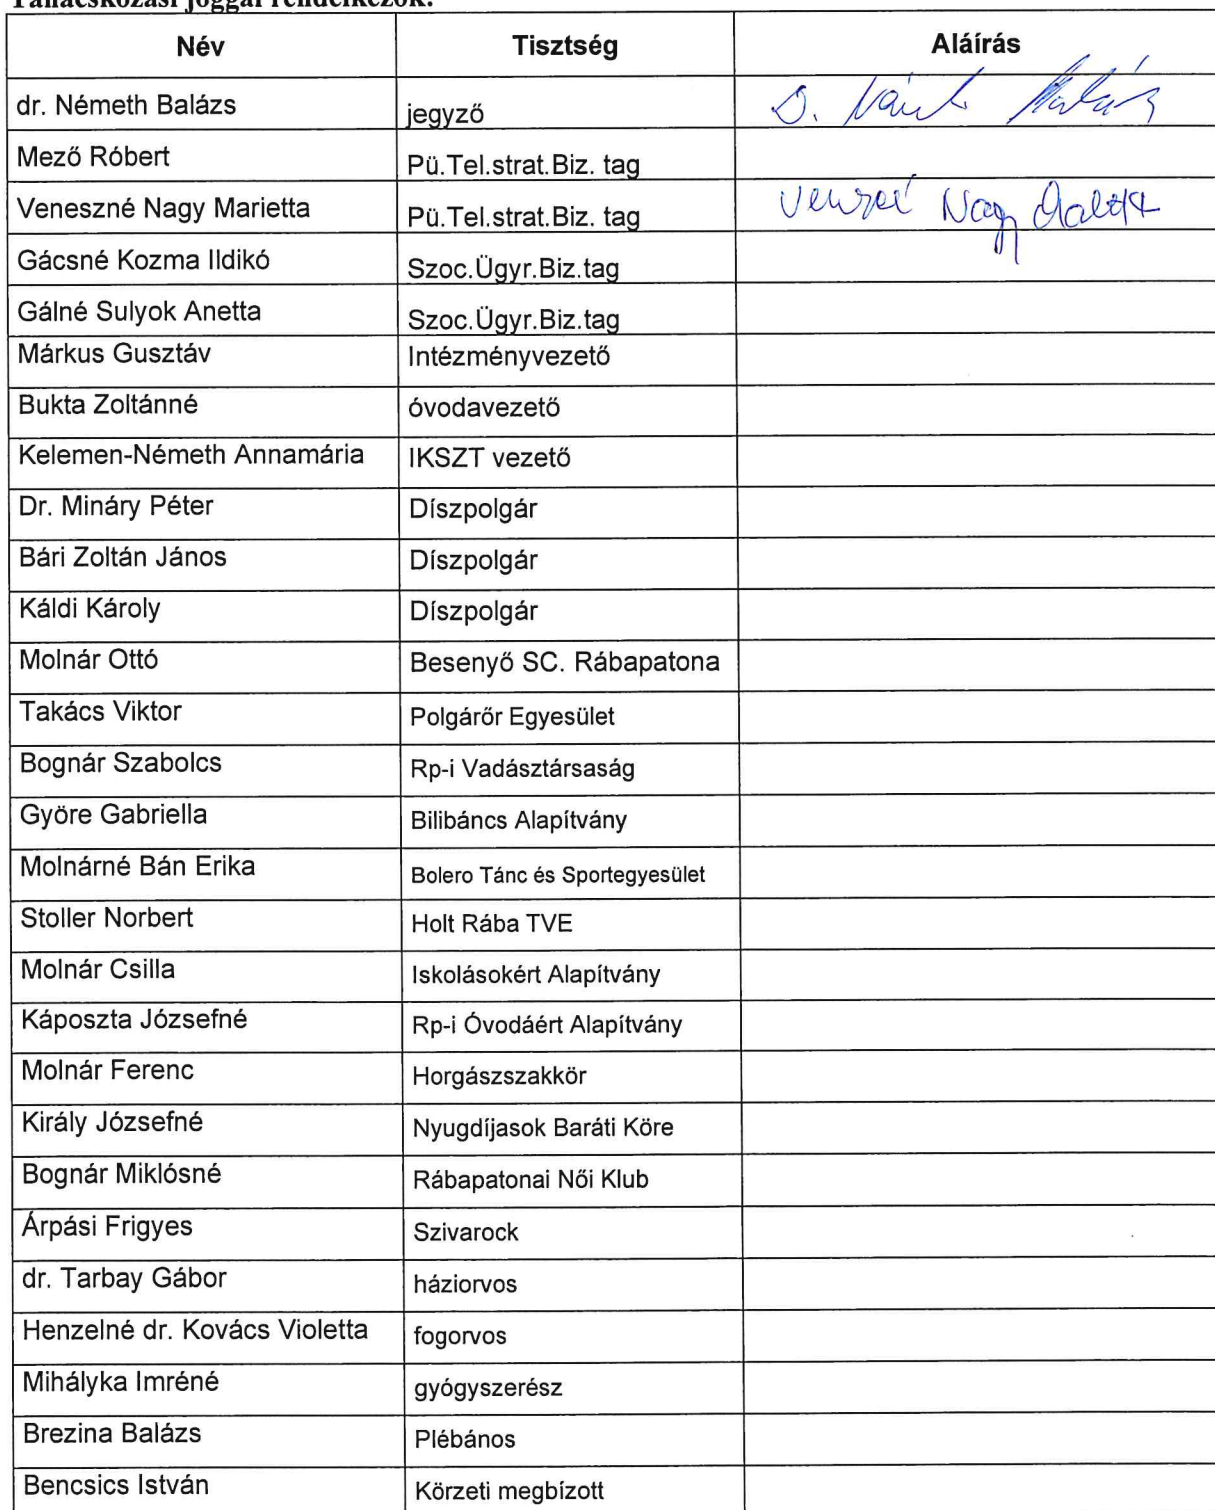 Tanácskozási joggal rendelkezők:
Név Tisztség Aláírás
dr. Németh Balázs jegyző
Mező Róbert Pü.Tel.strat.Biz. tag
Veneszné Nagy Marietta Pü.Tel.strat.Biz. tag Nagy
Gácsné Kozma Ildikó Szoc.Ügyr.Biz.tag
Gálné Sulyok Anetta Szoc.Ügyr.Biz.tag
Márkus Gusztáv Intézményvezető
Bukta Zoltánné óvodavezető
Kelemen-Németh Annamária IKSZT vezető
Dr. Mináry Péter Díszpolgár
Bári Zoltán János Díszpolgár
Káldi Károly Díszpolgár
Molnár Ottó Besenyő SC. Rábapatona
Takács Viktor Polgárőr Egyesület
Bognár Szabolcs Rp-i Vadásztársaság
Györe Gabriella Bilibáncs Alapítvány
Molnárné Bán Erika Bolero Tánc és Sportegyesület
Stoller Norbert Holt Rába TVE
Molnár Csilla Iskolásokért Alapítvány
Káposzta Józsefné Rp-i Óvodáért Alapítvány
Molnár Ferenc Horgászszakkör
Király Józsefné Nyugdíjasok Baráti Köre
Bognár Miklósné Rábapatonai Női Klub
Árpási Frigyes Szivarock
dr. Tarbay Gábor háziorvos
Henzelné dr. Kovács Violetta fogorvos
Mihályka Imréné gyógyszerész
Brezina Balázs Plébános
Bencsics István Körzeti megbízott